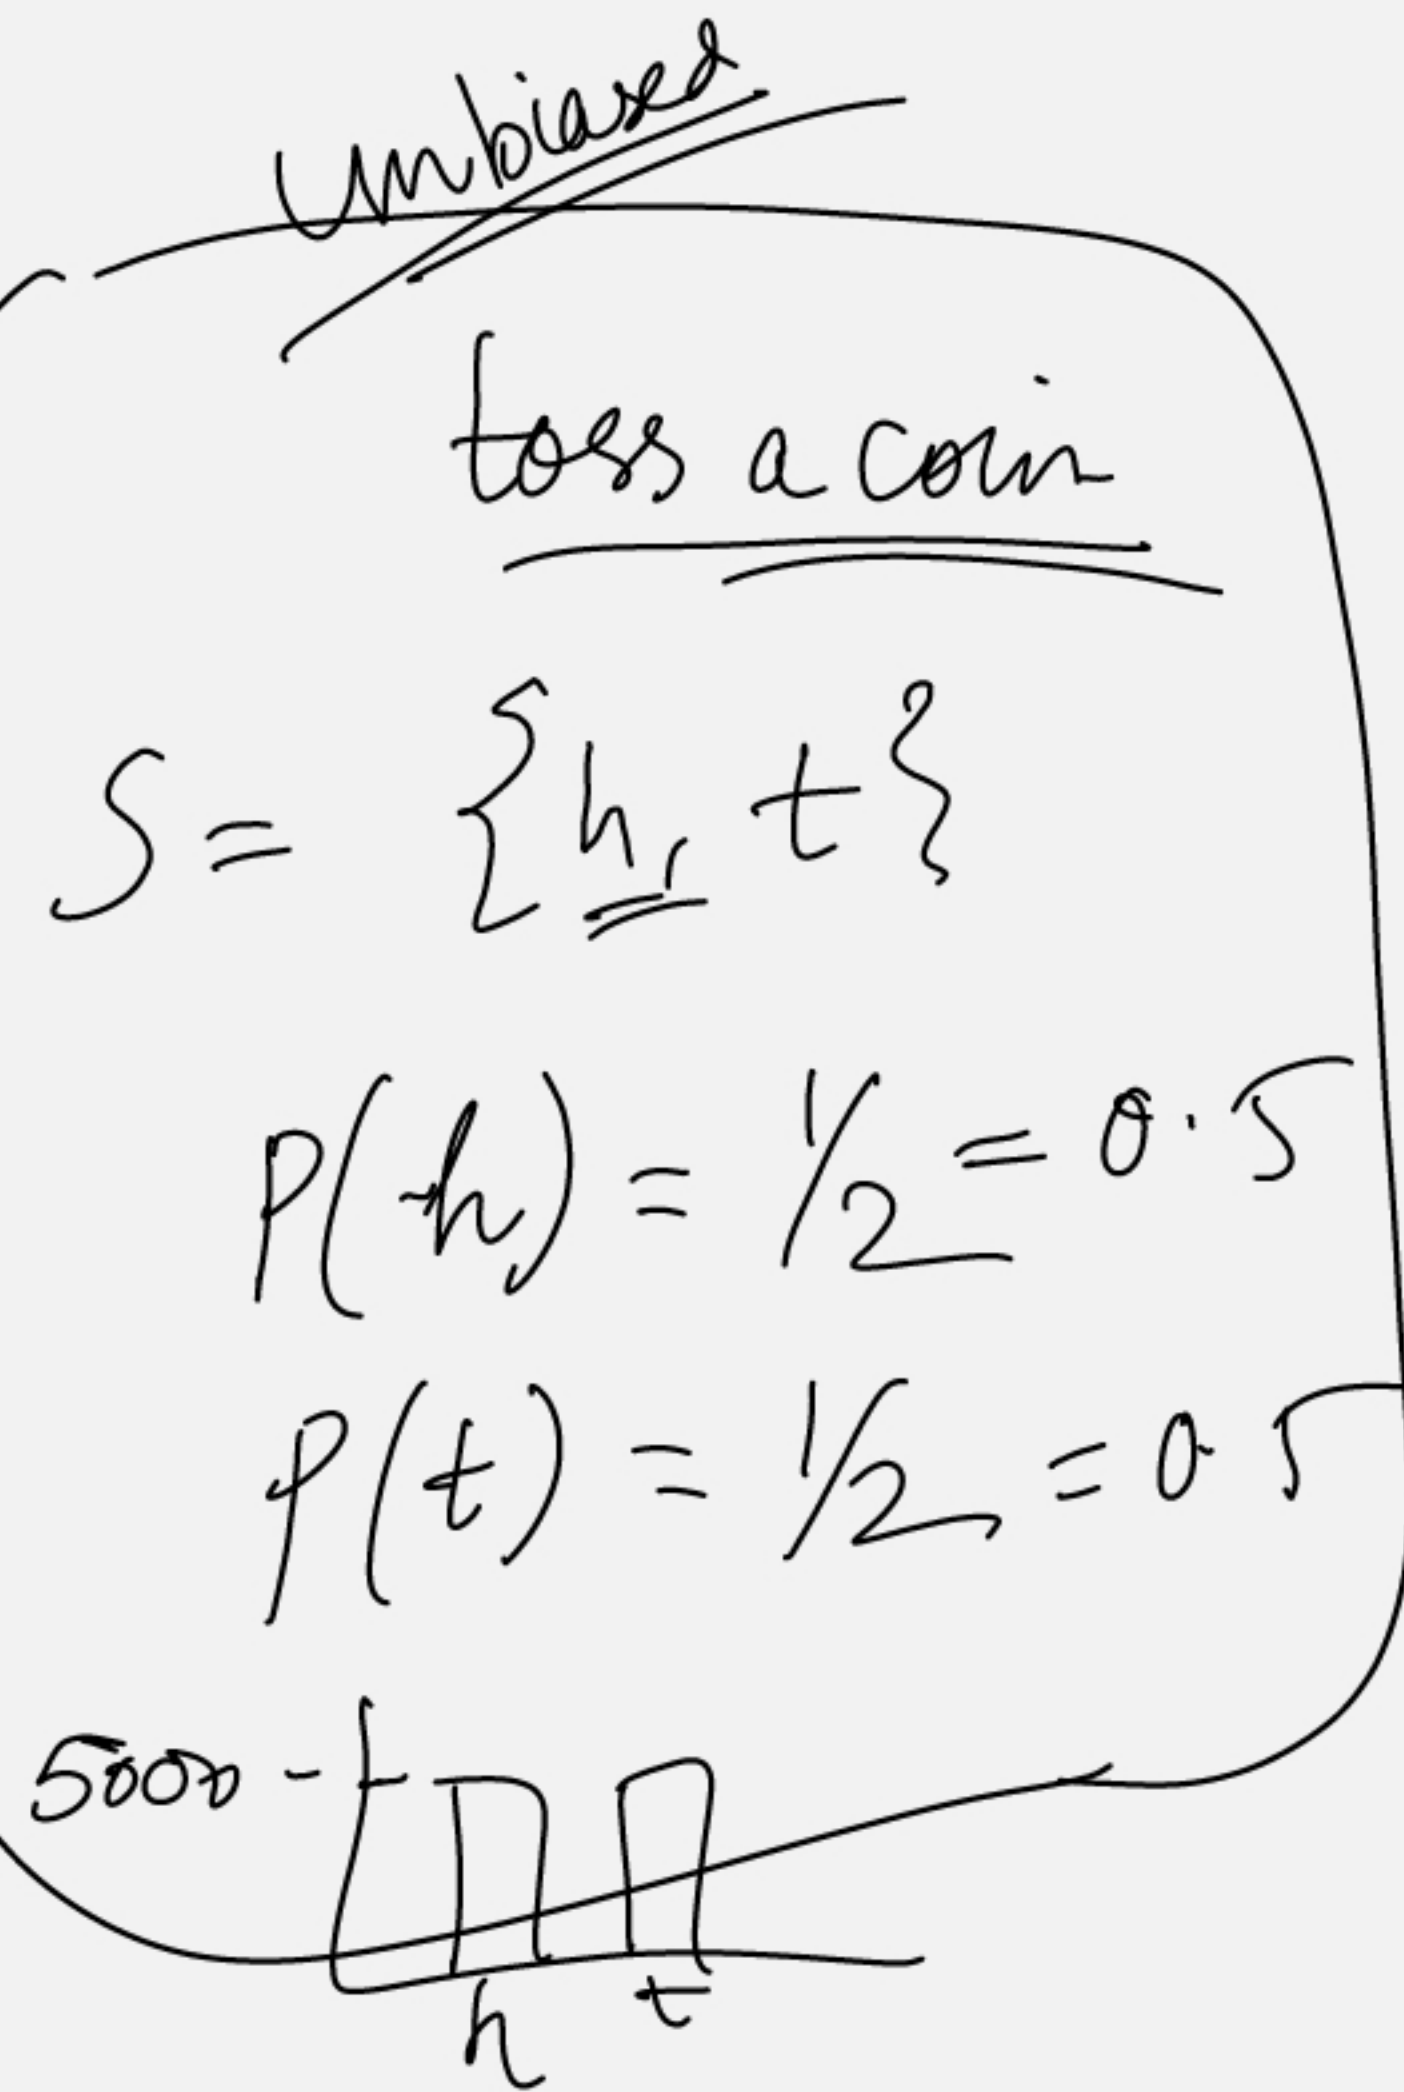 Unbiased
toss a coin
S = {h, t}
P(h) = 1/2 = 0.5
P(t) = 1/2 = 0.5
5000
h t